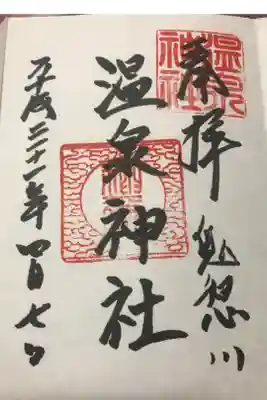 温泉神社
奉拝 鬼怒川
温泉神社
平成三十一年四月七日